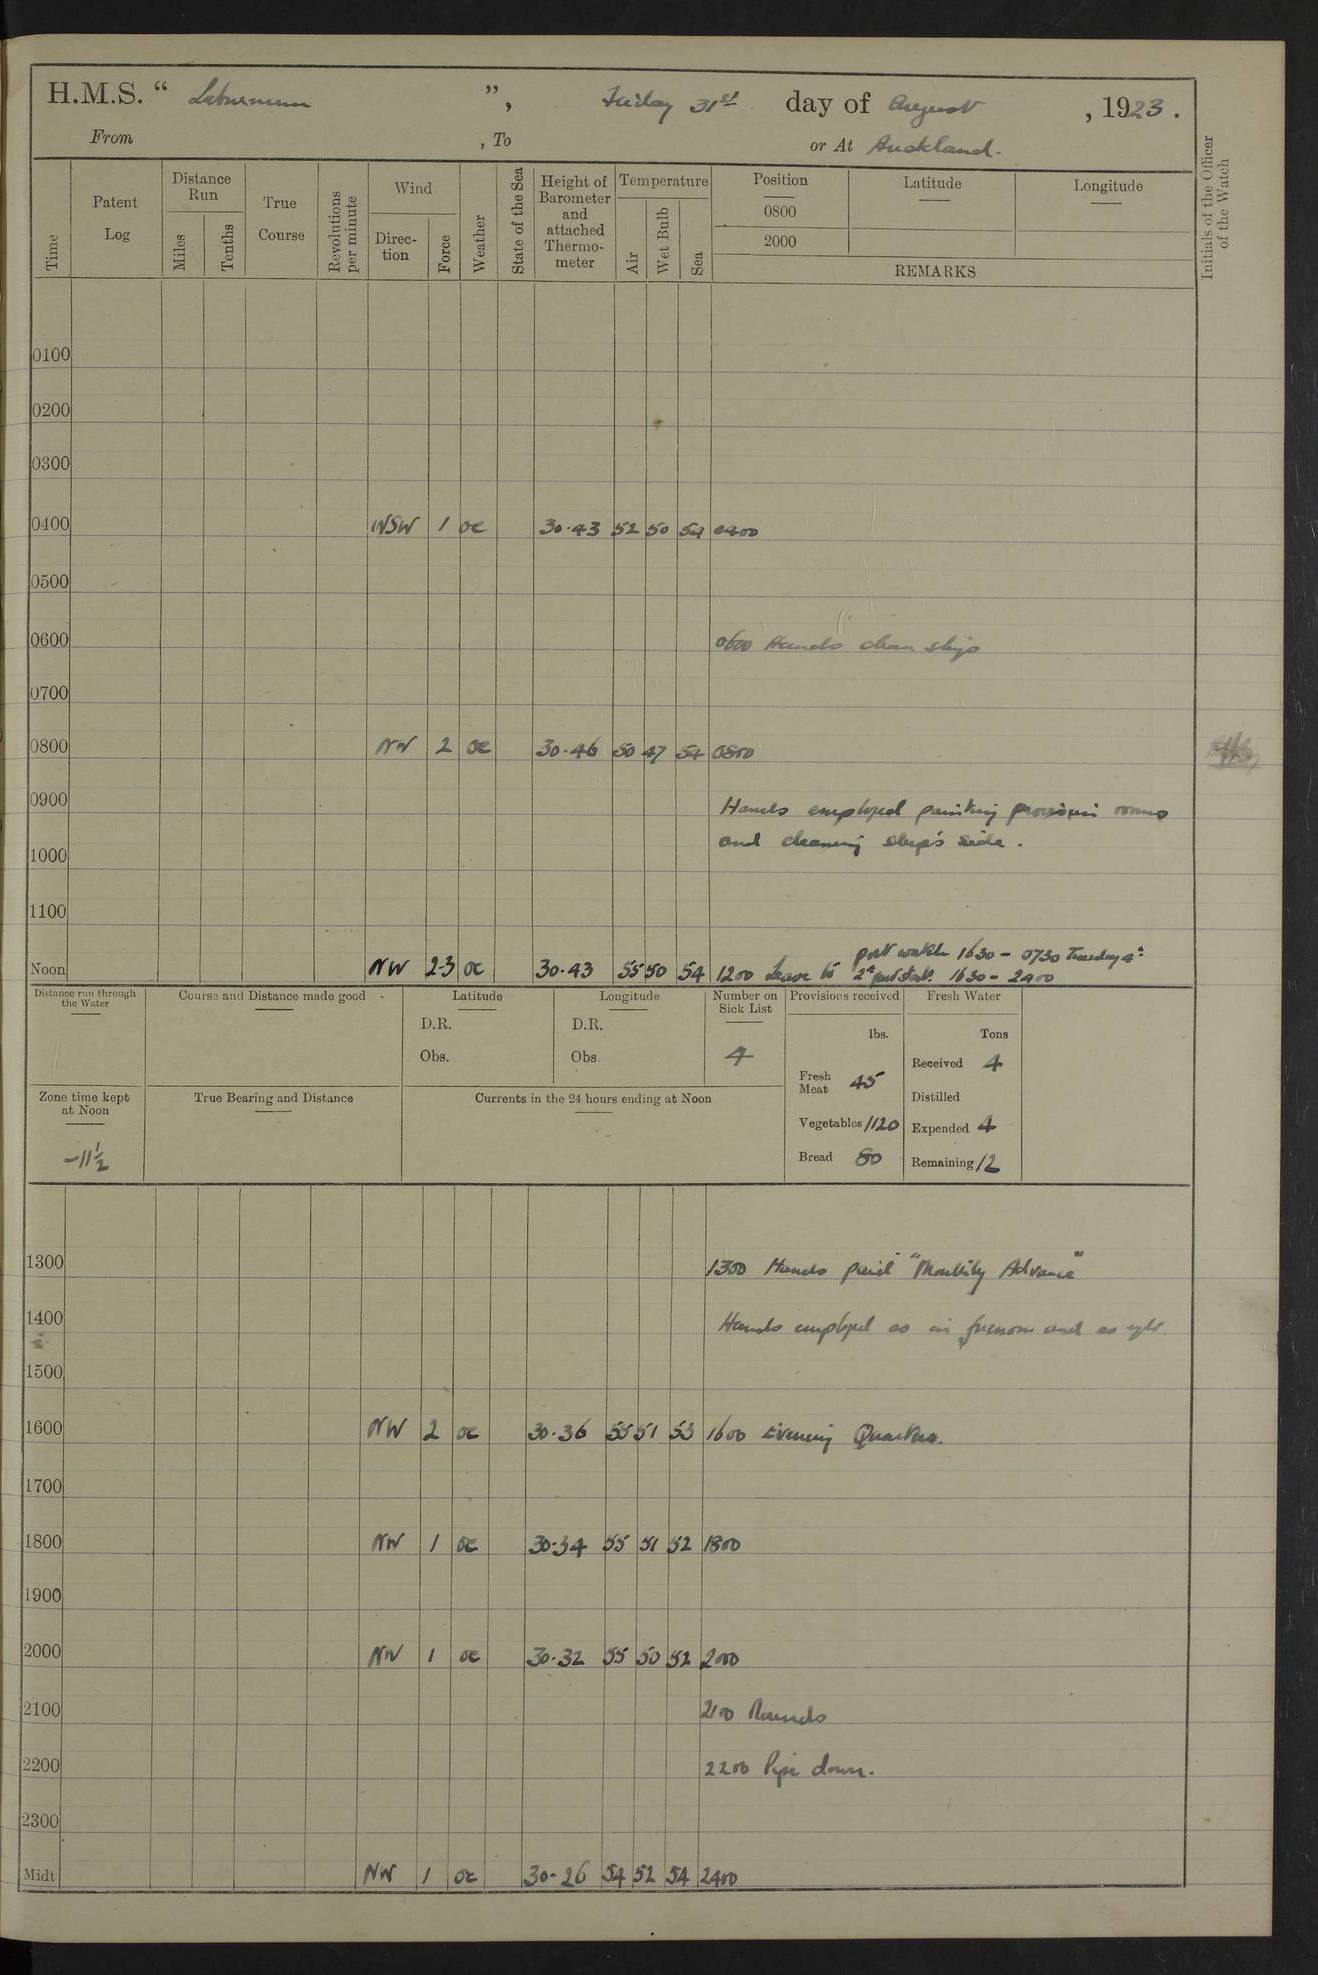 H.M.S. “ Laburnum ”, Friday 31st day of August , 1923.
From , To or At Auckland.
Time Patent Log Distance Run Miles Tenths True Course Revolutions per minute Wind Direc-tion Force Weather State of the Sea Height of Barometer and attached Thermo-meter Temperature Air Wet Bulb Sea Position Latitude Longitude Initials of the Officer of the Watch
0800
2000
REMARKS
0100
0200
0300
0400 WSW 1 oc 30.43 52 50 54 0400
0500
0600 0600 Hands clean ship
0700
0800 NW 2 oc 30.46 50 47 54 0800
0900 Hands employed painting provision rooms
and cleaning ship's side.
1000
1100
port watch 1630 - 0730 Tuesday 4th
Noon NW 2-3 oc 30.43 55 50 54 1200 Leave to 2d part Starb. 1630 - 2400
Distance run through the Water Course and Distance made good Latitude Longitude Number on Sick List Provisions received Fresh Water
D.R. D.R. lbs. Tons
Obs. Obs. 4 Fresh Meat 45 Received 4
Zone time kept at Noon True Bearing and Distance Currents in the 24 hours ending at Noon Distilled
Vegetables 1120 Expended 4
-11½ Bread 80 Remaining 12
1300 1300 Hands paid "Monthly Advance"
1400 Hands employed as in forenoon and as
1500
1600 NW 2 oc 30.36 55 51 53 1600 Evening Quarters.
1700
1800 NW 1 oc 30.34 55 51 52 1800
1900
2000 NW 1 oc 30.32 55 50 52 2000
2100 2100 Rounds
2200 2200 Pipe down.
2300
Midt NW 1 oc 30.26 54 52 54 2400